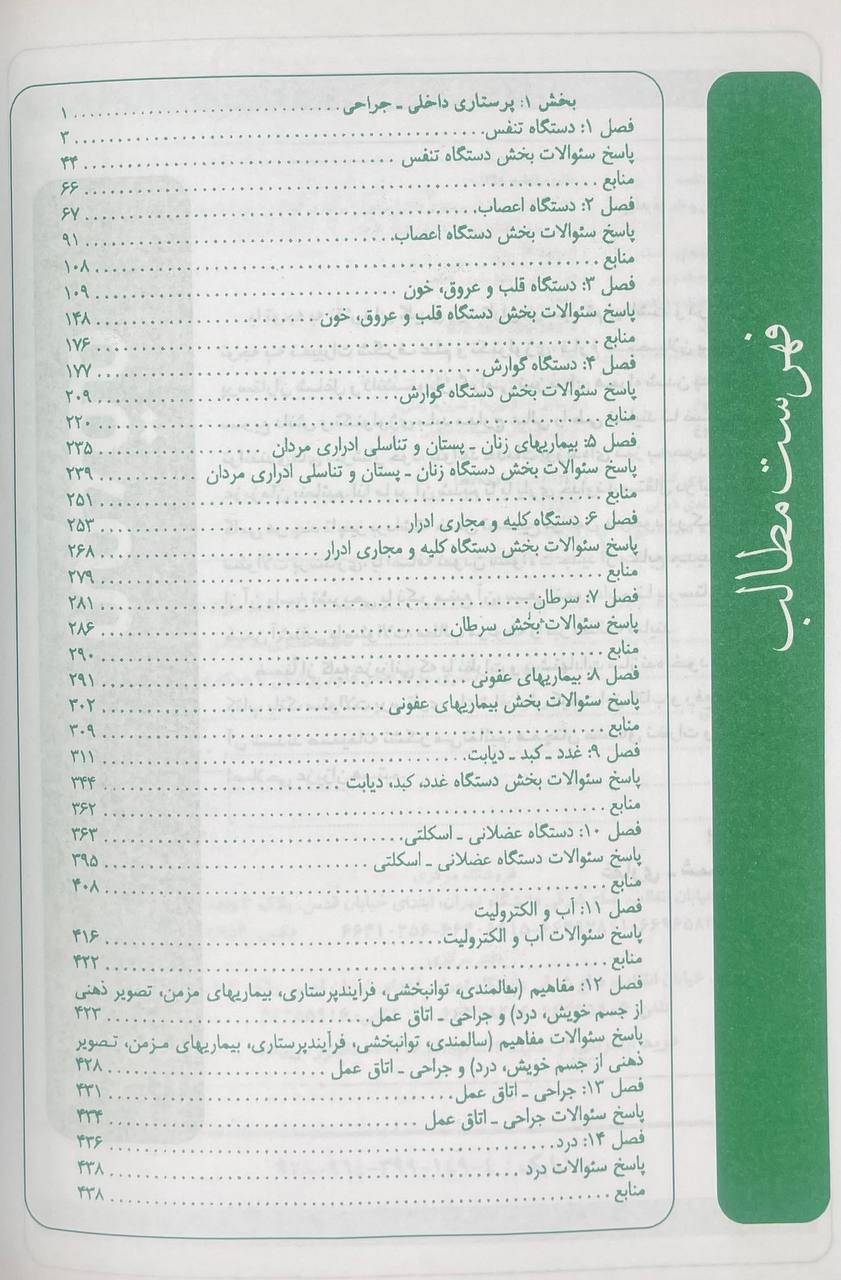 فهرست مطالب
بخش ۱: پرستاری داخلی ـ جراحی ........ ۱
فصل ۱: دستگاه تنفس ........ ۳
پاسخ سئوالات بخش دستگاه تنفس ........ ۴۴
منابع ........ ۶۶
فصل ۲: دستگاه اعصاب ........ ۶۷
پاسخ سئوالات بخش دستگاه اعصاب ........ ۹۱
منابع ........ ۱۰۸
فصل ۳: دستگاه قلب و عروق، خون ........ ۱۰۹
پاسخ سئوالات بخش دستگاه قلب و عروق، خون ........ ۱۴۸
منابع ........ ۱۷۶
فصل ۴: دستگاه گوارش ........ ۱۷۷
پاسخ سئوالات بخش دستگاه گوارش ........ ۲۰۹
منابع ........ ۲۲۰
فصل ۵: بیماریهای زنان ـ پستان و تناسلی ادراری مردان ........ ۲۳۵
پاسخ سئوالات بخش دستگاه زنان ـ پستان و تناسلی ادراری مردان ........ ۲۳۹
منابع ........ ۲۵۱
فصل ۶: دستگاه کلیه و مجاری ادرار ........ ۲۵۳
پاسخ سئوالات بخش دستگاه کلیه و مجاری ادرار ........ ۲۶۸
منابع ........ ۲۷۹
فصل ۷: سرطان ........ ۲۸۱
پاسخ سئوالات بخش سرطان ........ ۲۸۶
منابع ........ ۲۹۰
فصل ۸: بیماریهای عفونی ........ ۲۹۱
پاسخ سئوالات بخش بیماریهای عفونی ........ ۳۰۲
منابع ........ ۳۰۹
فصل ۹: غدد ـ کبد ـ دیابت ........ ۳۱۱
پاسخ سئوالات بخش دستگاه غدد، کبد، دیابت ........ ۳۴۴
منابع ........ ۳۶۲
فصل ۱۰: دستگاه عضلانی ـ اسکلتی ........ ۳۶۳
پاسخ سئوالات دستگاه عضلانی ـ اسکلتی ........ ۳۹۵
منابع ........ ۴۰۸
فصل ۱۱: آب و الکترولیت
پاسخ سئوالات آب و الکترولیت ........ ۴۱۶
منابع ........ ۴۲۲
فصل ۱۲: مفاهیم (سالمندی، توانبخشی، فرآیندپرستاری، بیماریهای مزمن، تصویر ذهنی
از جسم خویش، درد) و جراحی ـ اتاق عمل ........ ۴۲۳
پاسخ سئوالات مفاهیم (سالمندی، توانبخشی، فرآیندپرستاری، بیماریهای مزمن، تصویر
ذهنی از جسم خویش، درد) و جراحی ـ اتاق عمل ........ ۴۲۸
فصل ۱۳: جراحی ـ اتاق عمل ........ ۴۳۱
پاسخ سئوالات جراحی ـ اتاق عمل ........ ۴۳۴
فصل ۱۴: درد ........ ۴۳۶
پاسخ سئوالات درد ........ ۴۳۸
منابع ........ ۴۳۸